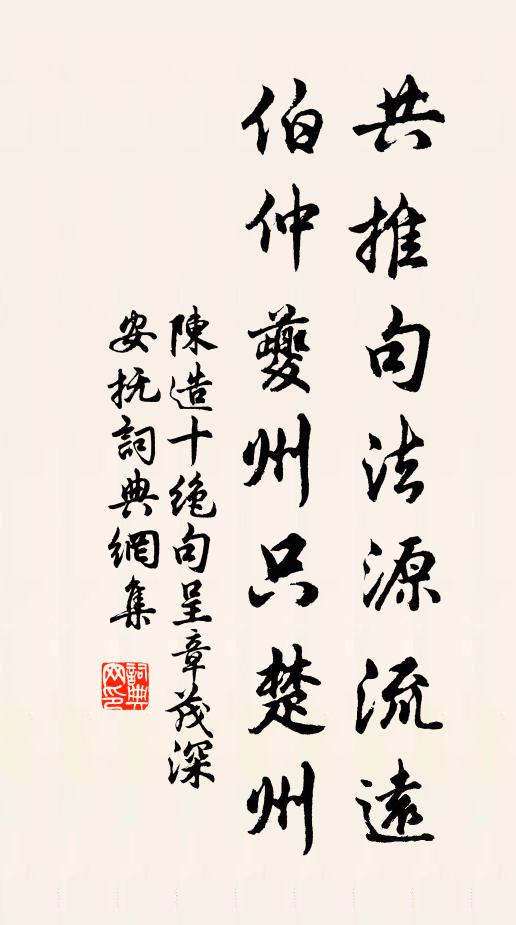 共推句法源流遠
伯仲夔州只楚州
陳造十绝句呈章茂深
安抚詞典網集
詞典网印